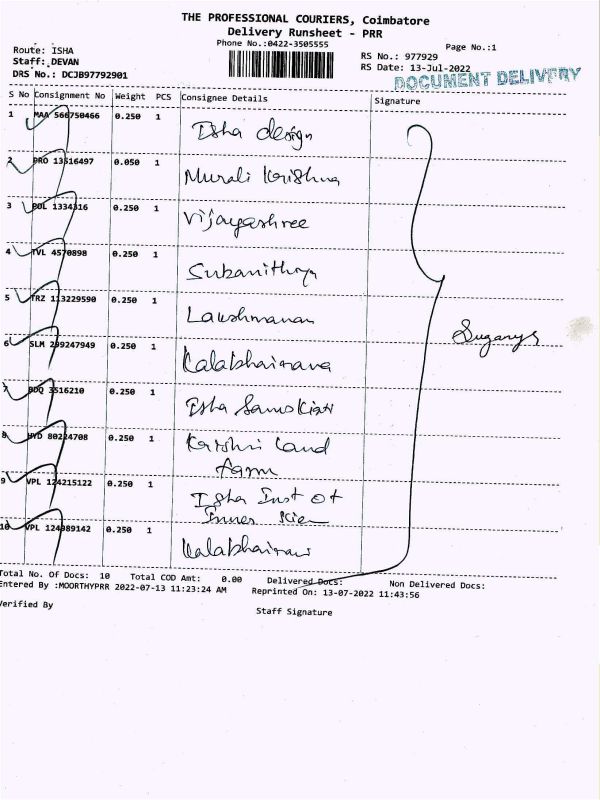 THE PROFESSIONAL COURIERS, Coimbatore
Delivery Runsheet - PRR
Phone No.:0422-3505555
Page No.:1
Route: ISHA
Staff: DEVAN
DRS No.: DCJB97792901
RS No.: 977929
RS Date: 13-Jul-2022
DOCUMENT DELIVERY
S No Consignment No Weight PCS Consignee Details Signature
1 MAA 566750466 0.250 1 Isha design
2 PRO 13516497 0.050 1 Murali Krishna
3 POL 1334316 0.250 1 Vijayashree
4 TVL 4570898 0.250 1 Subanithya
5 TRZ 113229590 0.250 1 Lakshmanan
6 SLM 299247949 0.250 1 Kalabhairava
7 BDQ 3516210 0.250 1 Isha Samskriti
8 HYD 80224708 0.250 1 Krishni Land
Farm
9 VPL 124215122 0.250 1 Isha Inst of
Inner Scien
10 VPL 124989142 0.250 1 Kalabhairav
Suganya
Total No. Of Docs: 10 Total COD Amt: 0.00 Delivered Docs: Non Delivered Docs:
Entered By :MOORTHYPRR 2022-07-13 11:23:24 AM Reprinted On: 13-07-2022 11:43:56
Verified By
Staff Signature